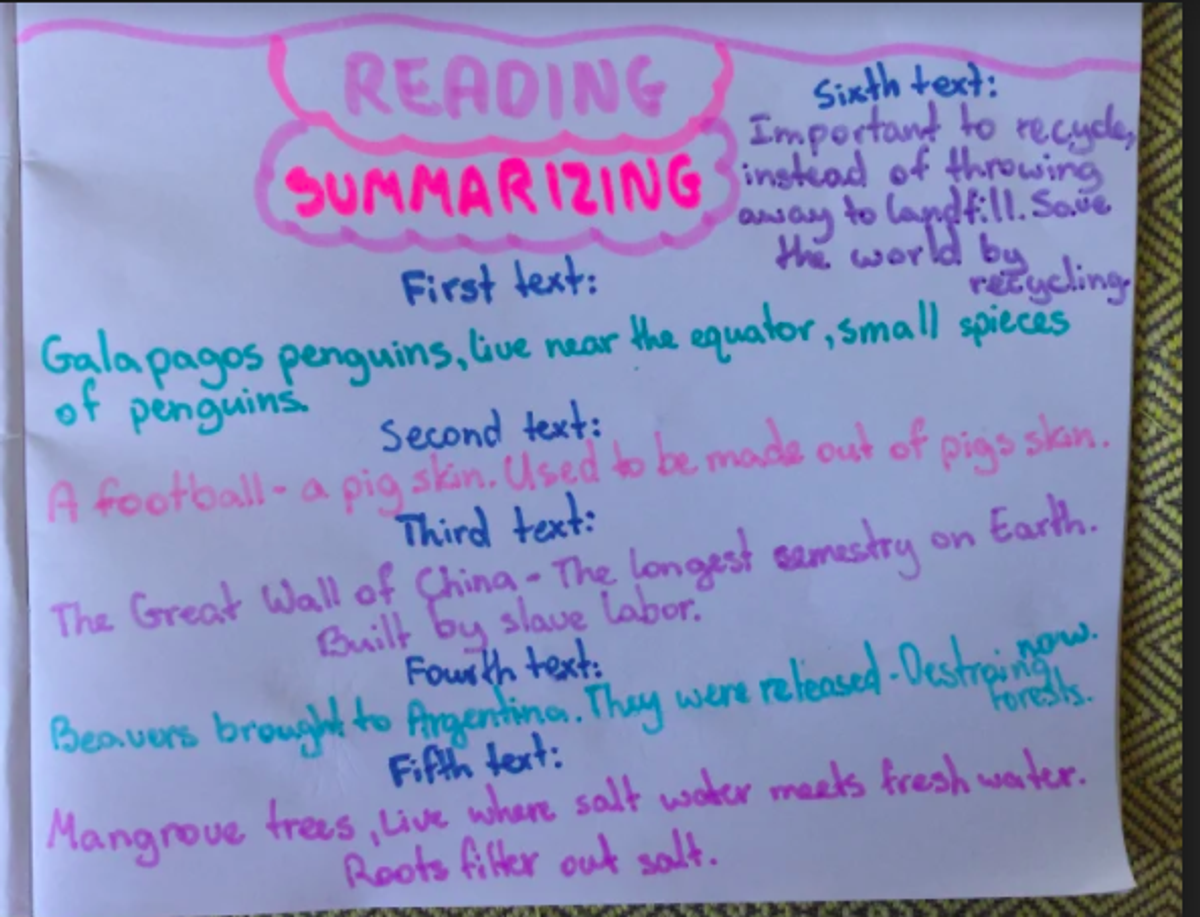 READING
SUMMARIZING
First text:
Galapagos penguins, live near the equator, small spieces
of penguins.
Second text:
A football - a pig skin. Used to be made out of pigs skin.
Third text:
The Great Wall of China - The longest semestry on Earth.
Built by slave labor.
Fourth text:
Beavers brought to Argentina. They were released - Destroing now.
forests.
Fifth text:
Mangrove trees, Live where salt water meets fresh water.
Roots filter out salt.
Sixth text:
Important to recycle,
instead of throwing
away to landfill. Save
the world by
recycling.